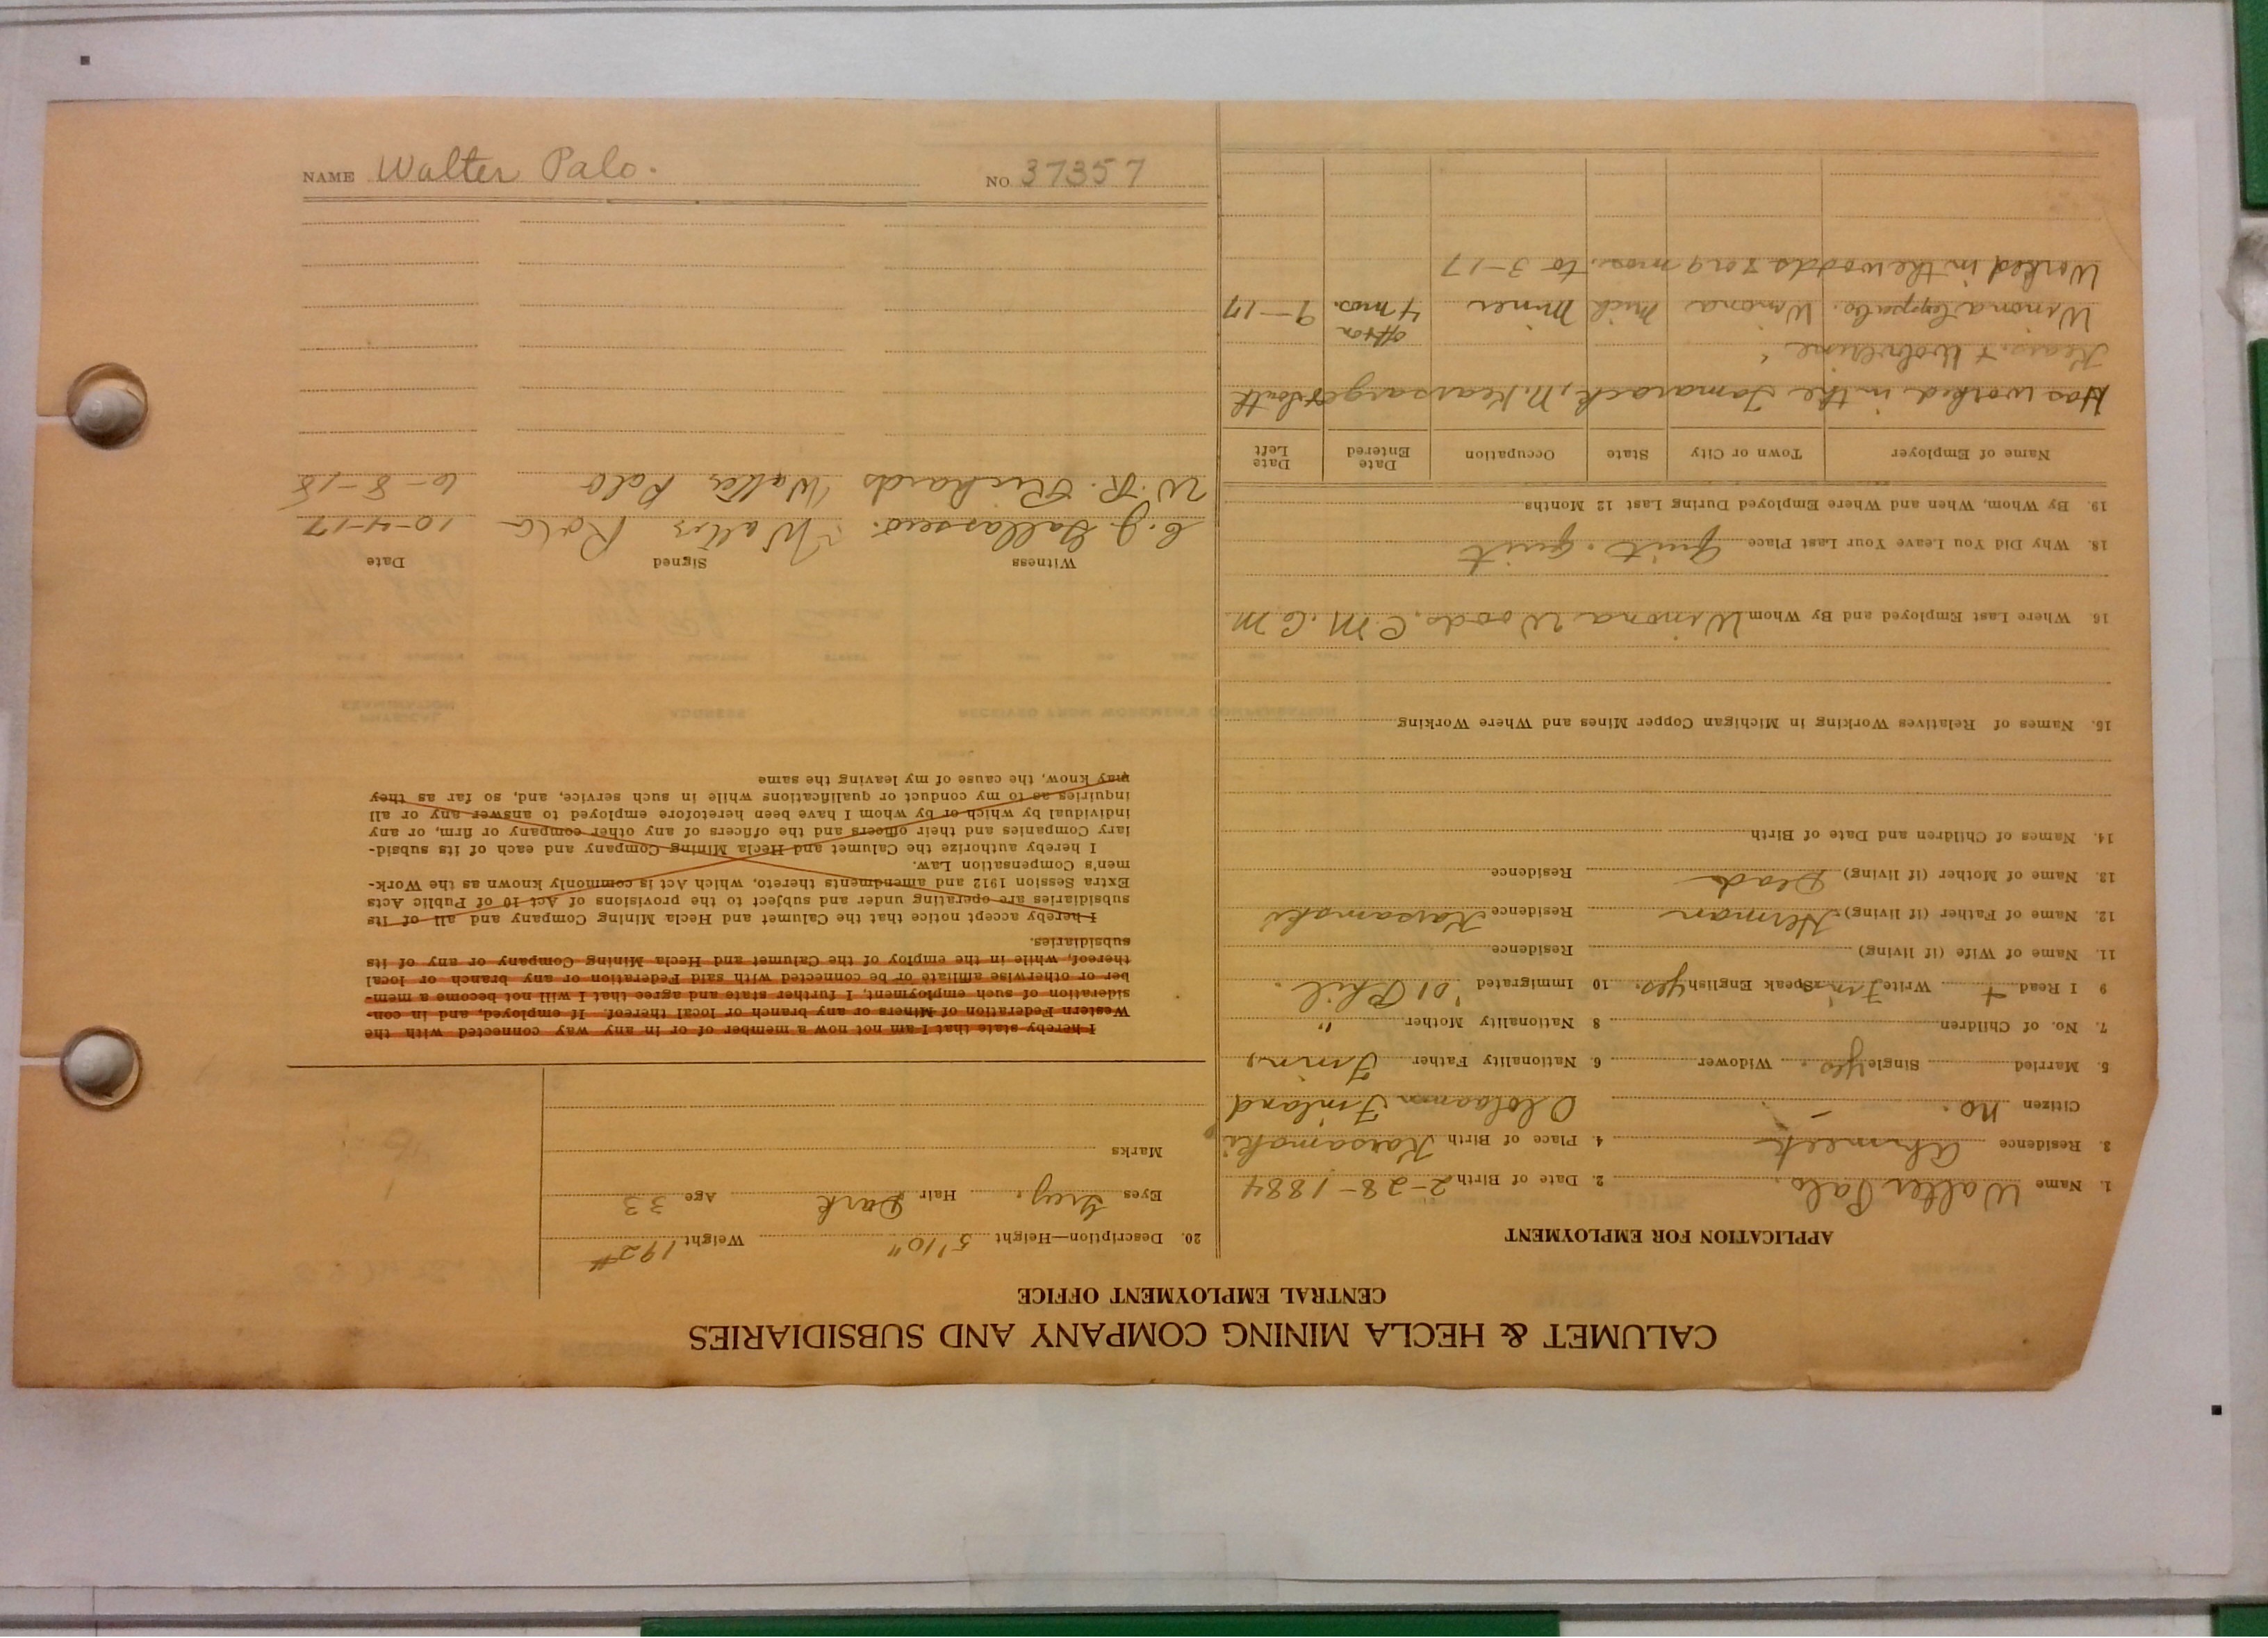 CALUMET & HECLA MINING COMPANY AND SUBSIDIARIES
CENTRAL EMPLOYMENT OFFICE
APPLICATION FOR EMPLOYMENT
1. Name Walter Palo. 2. Date of Birth 2-28-1884
3. Residence Ahmeek 4. Place of Birth Karsamaki
Citizen no. - Finland
5. Married Single yes. Widower 6. Nationality Father Finn,
7. No. of Children 8 Nationality Mother "
9 I Read + Write Finn Speak English yes. 10 Immigrated '01 Phil.
11. Name of Wife (if living) Residence
12. Name of Father (if living) Herman Residence Karsamaki
13. Name of Mother (if living) Dead Residence
14. Names of Children and Date of Birth
15. Names of Relatives Working in Michigan Copper Mines and Where Working
16 Where Last Employed and By Whom Winona Woods, C.M. Co M
18. Why Did You Leave Your Last Place Quit. quit
19. By Whom, When and Where Employed During Last 12 Months
Name of Employer Town or City State Occupation Date Entered Date Left
Has worked in the Tamarack, N. Kearsarge & South
Kears. + Wolverine
off + on
Winona Copper Co. Winona Mich Miner 4 mos. 9-17
Worked in the woods mos. to 3-17
20. Description—Height 5'10" Weight 192#
Eyes Grey. Hair Dark Age 33
Marks
I hereby state that I am not now a member of or in any way connected with the
Western Federation of Miners or any branch or local thereof. If employed, and in con-
sideration of such employment, I further state and agree that I will not become a mem-
ber or otherwise affiliate or be connected with said Federation or any branch or local
thereof, while in the employ of the Calumet and Hecla Mining Company or any of its
subsidiaries.
I hereby accept notice that the Calumet and Hecla Mining Company and all of its
subsidiaries are operating under and subject to the provisions of Act 10 of Public Acts
Extra Session 1912 and amendments thereto, which Act is commonly known as the Work-
men's Compensation Law.
I hereby authorize the Calumet and Hecla Mining Company and each of its subsid-
iary Companies and their officers and the officers of any other company or firm, or any
individual by which or by whom I have been heretofore employed to answer any or all
inquiries as to my conduct or qualifications while in such service, and, so far as they
may know, the cause of my leaving the same
Witness Signed Date
C. J. Walter Palo 10-4-17
W. R. Richards Walter Palo 6-8-18
NAME Walter Palo. NO 37357